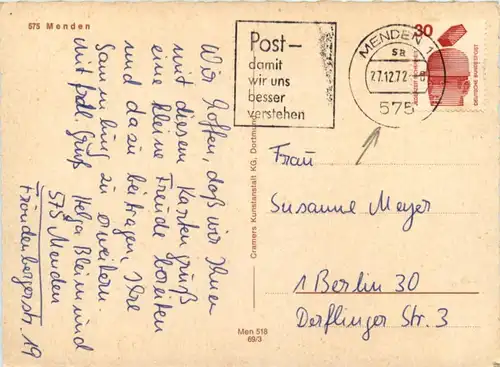 575 Menden
Wir hoffen, daß wir Ihnen
mit diesem Kartengruß
eine kleine Freude bereiten
und dazu beitragen, Ihre
Sammlung zu erweitern.
Mit frdl. Gruß Helga
575 Menden
Fröndenbergerstr. 19
Cramers Kunstanstalt KG, Dortmund
Men 518
69/3
Post –
damit
wir uns
besser
verstehen
MENDEN 1
sa
27.12.72
575
30
Frau
Susanne Meyer
1 Berlin 30
Derflinger Str. 3